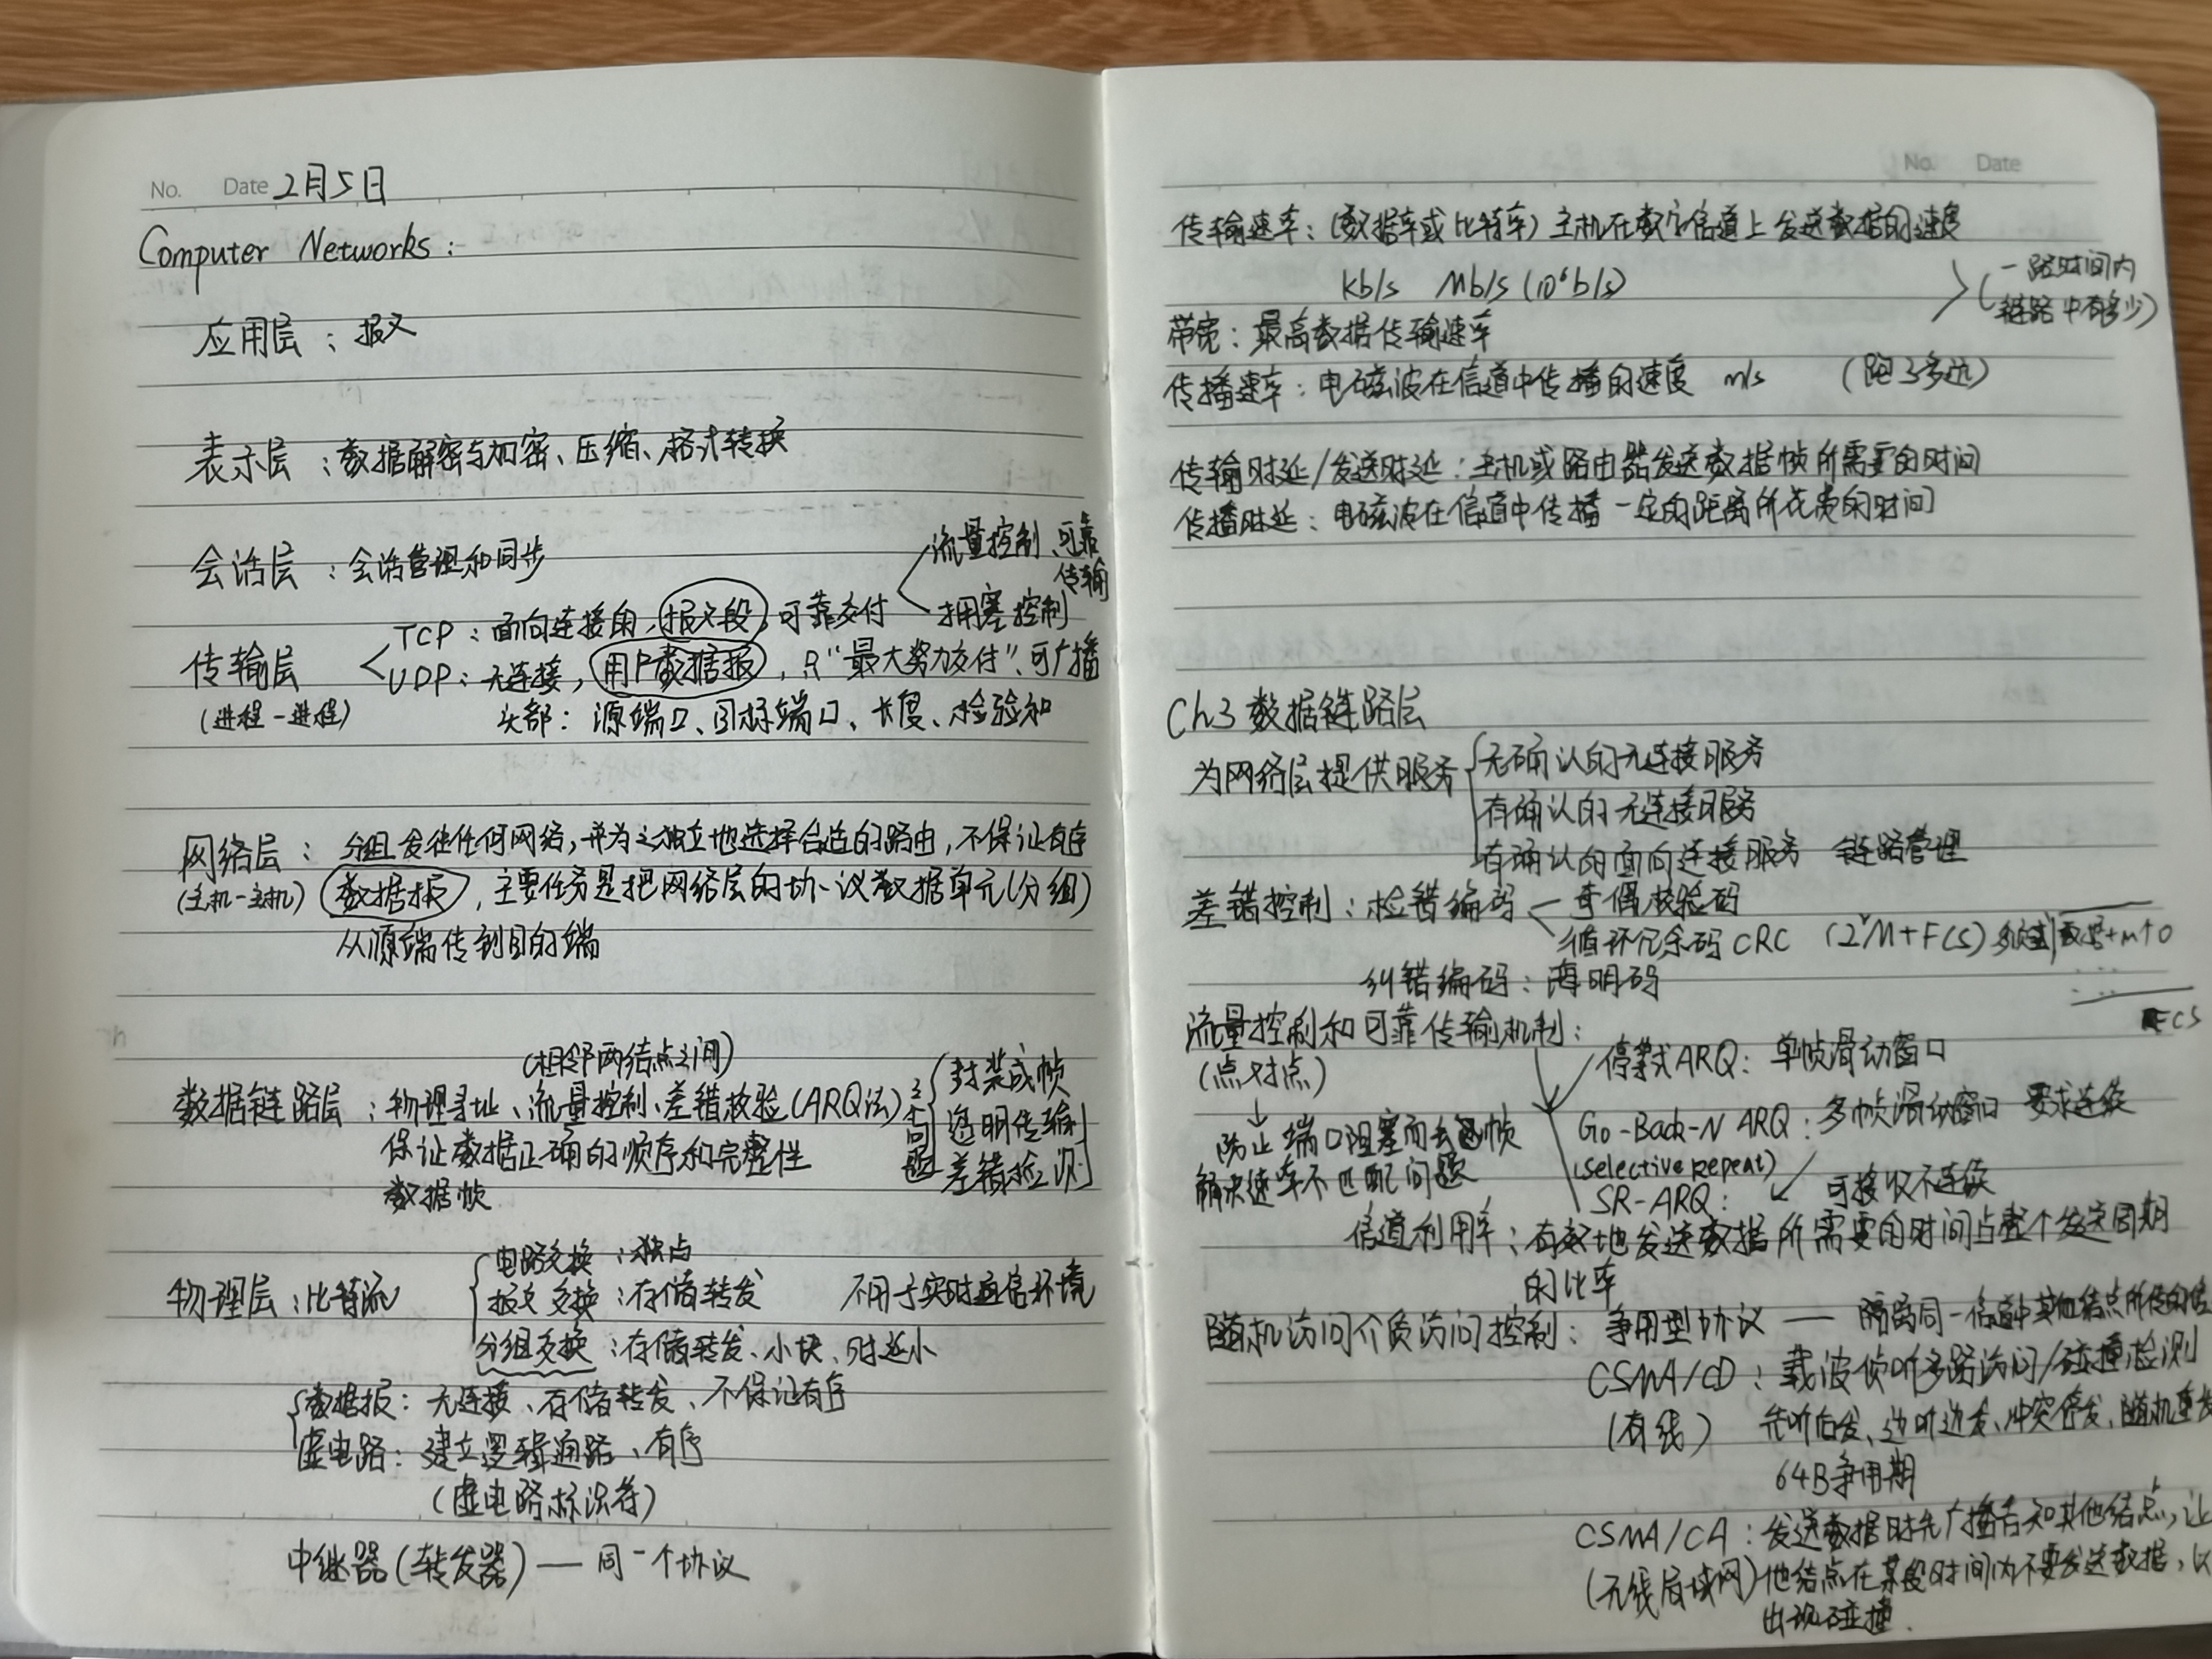 No. Date 2月5日
Computer Networks:
应用层：报文
表示层：数据解密与加密、压缩、格式转换
会话层：会话管理和同步
流量控制、可靠传输
拥塞控制
传输层
(进程-进程)
TCP：面向连接的,报文段,可靠交付
UDP：无连接，用户数据报，只“最大努力交付”、可广播
头部：源端口、目标端口、长度、检验和
网络层：分组发往任何网络,并为之独立地选择合适的路由,不保证有序
(主机-主机) 数据报，主要任务是把网络层的协议数据单元(分组)
从源端传到目的端
(相邻两结点之间)
数据链路层：物理寻址、流量控制、差错校验(ARQ法)
保证数据正确的顺序和完整性
数据帧
三个问题
封装成帧
透明传输
差错检测
物理层：比特流
电路交换：独占
报文交换：存储转发 不用于实时通信环境
分组交换：存储转发、小块、时延小
数据报：无连接、存储转发、不保证有序
虚电路：建立逻辑通路、有序
(虚电路标识符)
中继器(转发器)—同一个协议
No. Date
传输速率：(数据率或比特率)主机在数字信道上发送数据的速度
kb/s Mb/s(10⁶b/s)
(一段时间内
链路中有多少)
带宽：最高数据传输速率
传播速率：电磁波在信道中传播的速度 m/s (跑了多远)
传输时延/发送时延：主机或路由器发送数据帧所需要的时间
传播时延：电磁波在信道中传播一定的距离所花费的时间
Ch3数据链路层
为网络层提供服务
无确认的无连接服务
有确认的无连接服务
有确认的面向连接服务 链路管理
差错控制：检错编码
奇偶校验码
循环冗余码CRC (2ʳM+FCS) 多项式 数据+m个0
FCS
纠错编码：海明码
流量控制和可靠传输机制：
(点对点)
停等式ARQ：单帧滑动窗口
Go-Back-N ARQ：多帧滑动窗口 要求连续
(selective repeat)
SR-ARQ： 可接收不连续
防止端口阻塞而丢帧
解决速率不匹配问题
信道利用率：有效地发送数据所需要的时间占整个发送周期
的比率
随机访问介质访问控制：争用型协议 — 隔离同一信道中其他结点所传的信
CSMA/CD：载波侦听多路访问/碰撞检测
(有线) 先听后发、边听边发、冲突停发、随机重发
64B争用期
CSMA/CA：发送数据时先广播告知其他结点，让
(无线局域网)他结点在某段时间内不要发送数据，以
出现碰撞.